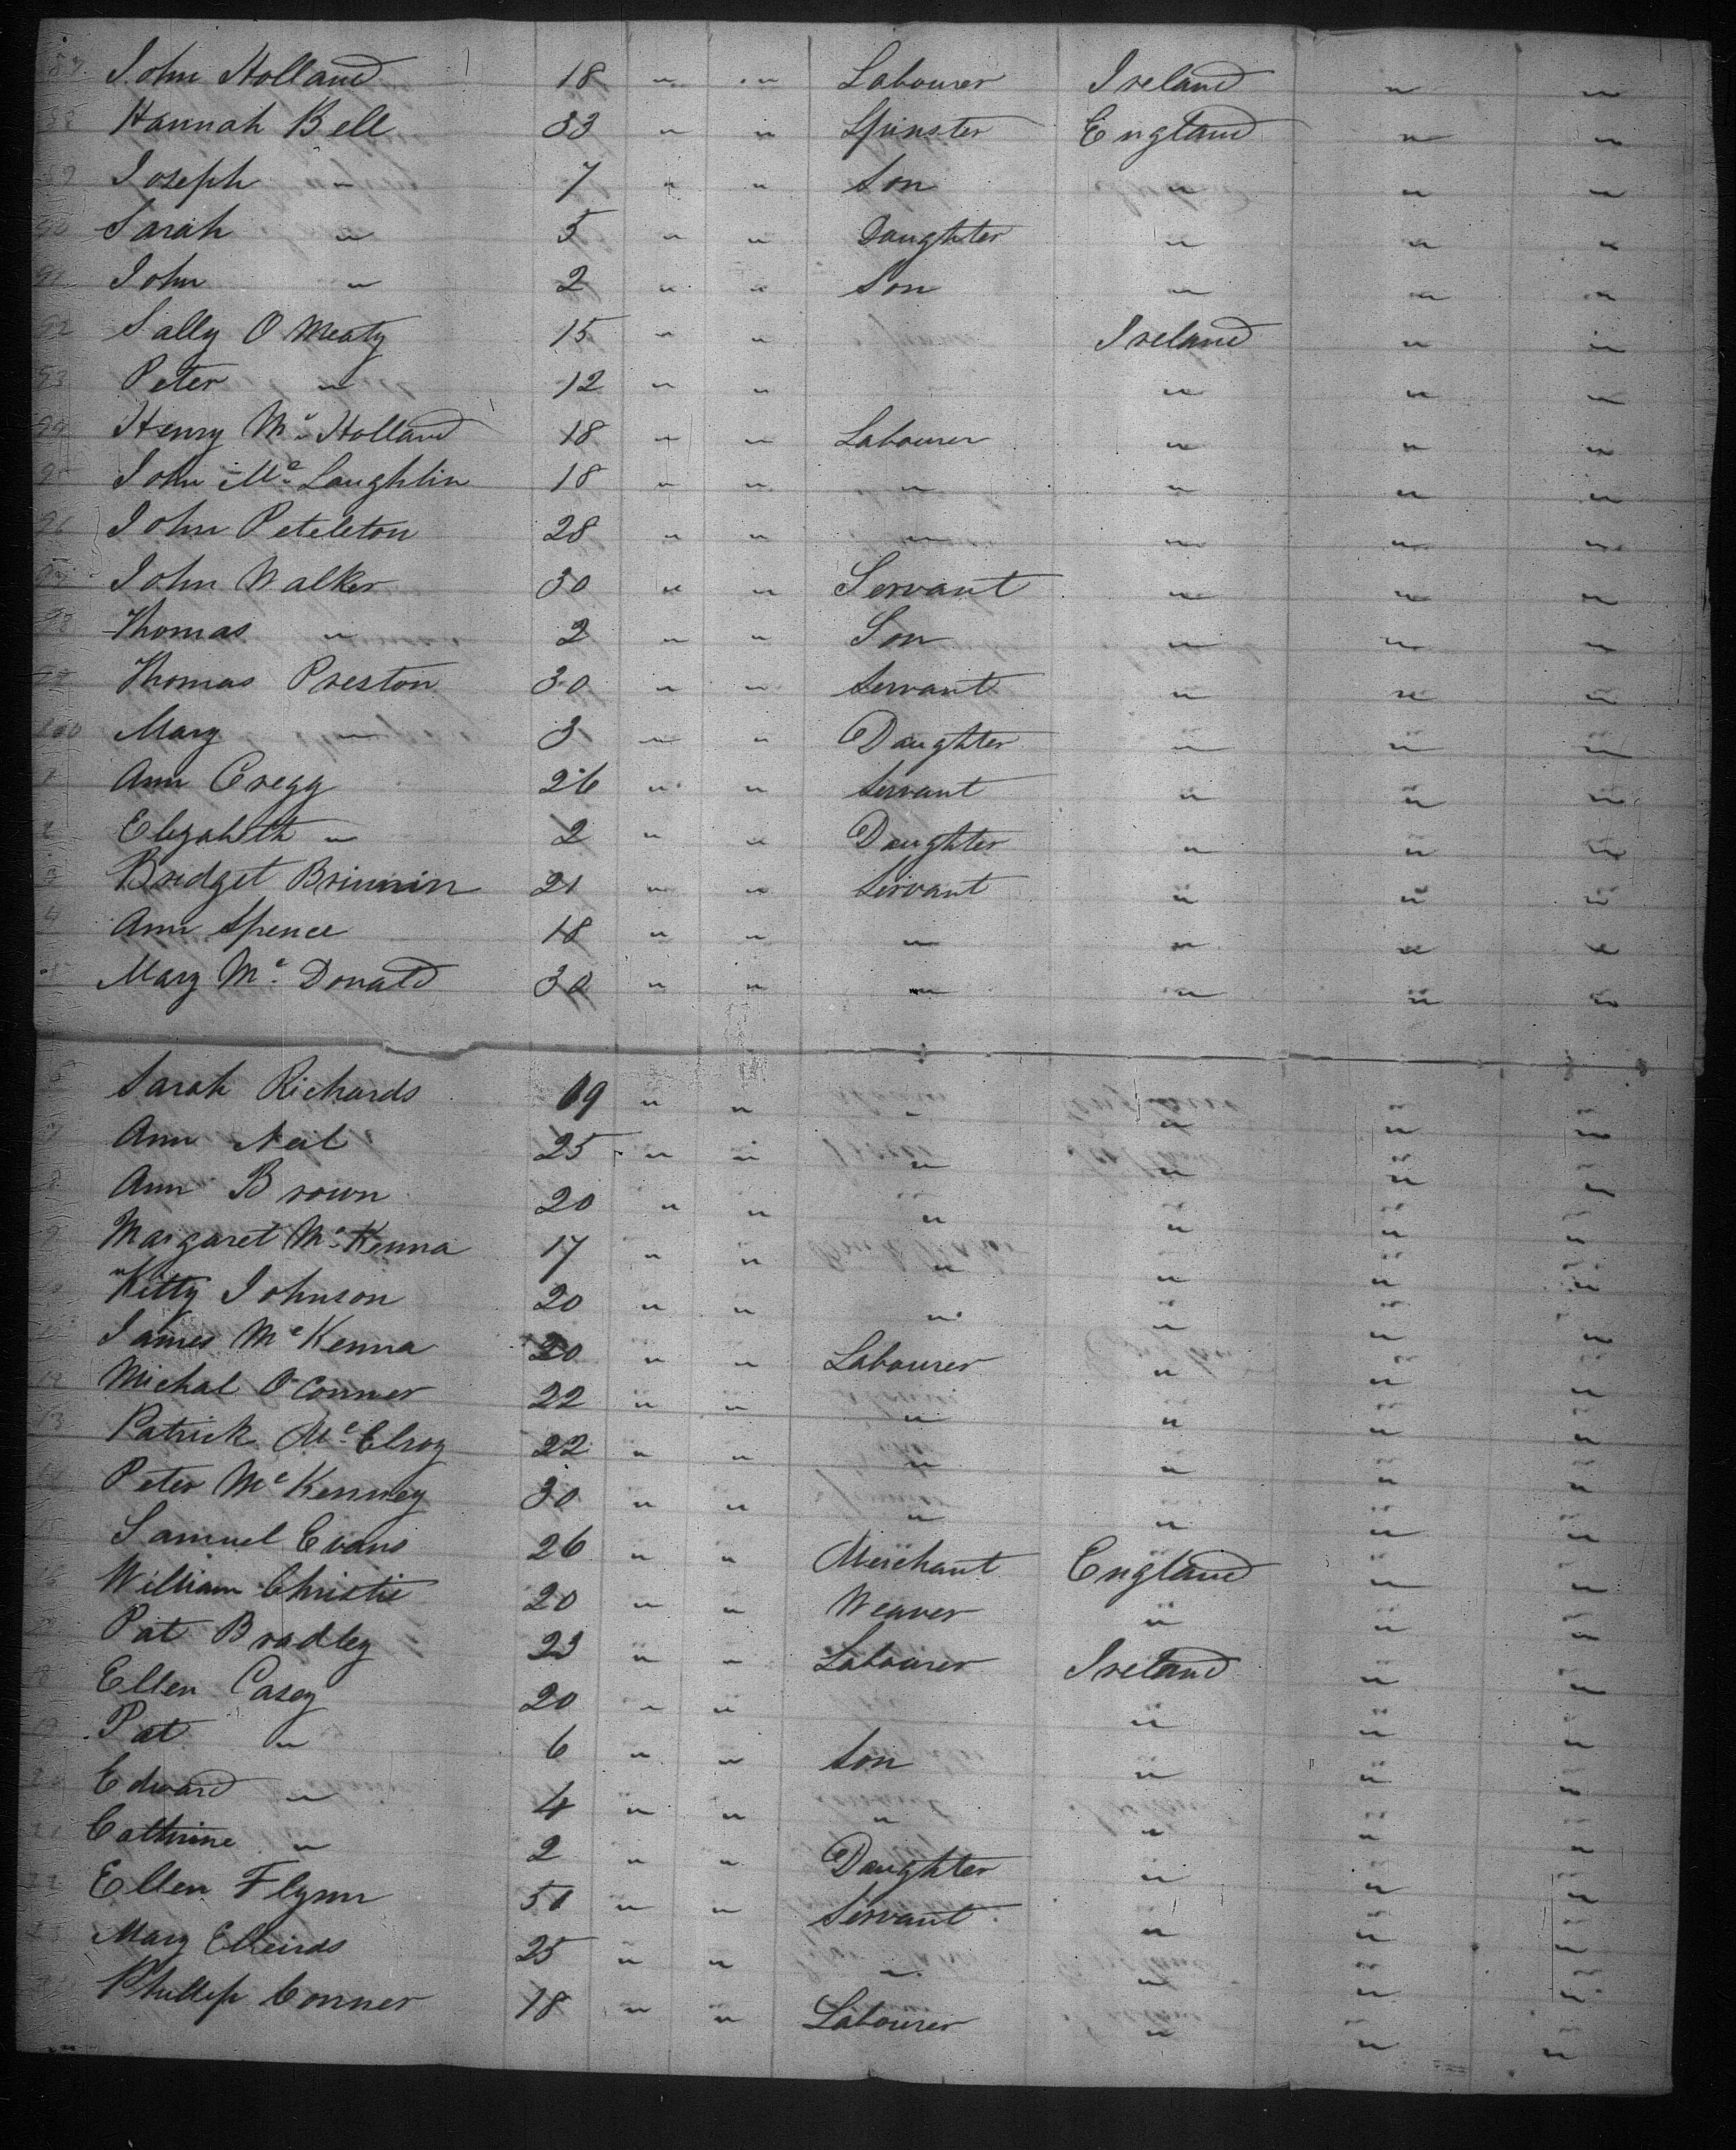 87 John Holland 18 " " Labourer Ireland " "
88 Hannah Bell 33 " " Spinster England " "
89 Joseph " 7 " " Son " " "
90 Sarah " 5 " " Daughter " " "
91 John " 2 " " Son " " "
92 Sally O Meaty 15 " " Ireland " "
93 Peter " 12 " " " " "
94 Henry Mc Holland 18 " " Labourer " " "
95 John Mc Laughlin 18 " " " " " "
96 John Peteleton 28 " " " " " "
97 John Walker 30 " " Servant " " "
98 Thomas " 2 " " Son " " "
99 Thomas Preston 30 " " Servant " " "
100 Mary " 3 " " Daughter " " "
1 Ann Cregg 26 " " Servant " " "
2 Elizabeth " 2 " " Daughter " " "
3 Bridget Brinnin 21 " " Servant " " "
4 Ann Spence 18 " " " " " "
5 Mary Mc Donald 30 " " " " " "
6 Sarah Richards 19 " " " " " "
7 Ann Neil 25 " " " " " "
8 Ann Brown 20 " " " " " "
9 Margaret Mc Kenna 17 " " " " " "
Kitty Johnson 20 " " " " " "
James Mc Kenna 20 " " Labourer " " "
12 Michal O Conner 22 " " " " " "
13 Patrick Mc Elroy 22 " " " " " "
14 Peter Mc Kenney 30 " " " " " "
15 Samuel Evans 26 " " Merchant England " "
16 William Christie 20 " " Weaver " " "
Pat Bradley 23 " " Labourer Ireland " "
8 Ellen Casey 20 " " " " "
19 Pat " 6 " " Son " " "
20 Edward " 4 " " " " " "
21 Cathrine " 2 " " Daughter " " "
22 Ellen Flynn 50 " " Servant " " "
23 Mary 25 " " " " " "
Phillip Conner 18 " " Labourer " " "